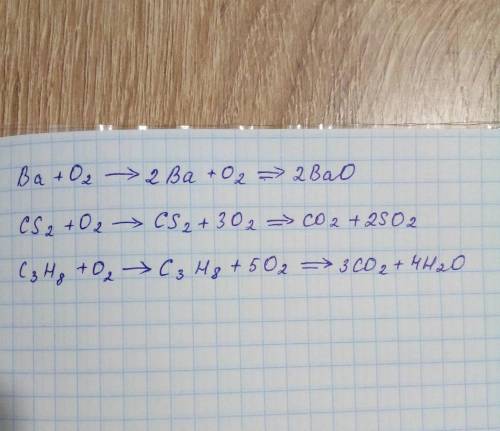 Ba + O₂ → 2 Ba + O₂ ⇒ 2BaO
CS₂ + O₂ → CS₂ + 3O₂ ⇒ CO₂ + 2SO₂
C₃H₈ + O₂ → C₃ H₈ + 5O₂ ⇒ 3CO₂ + 4H₂O